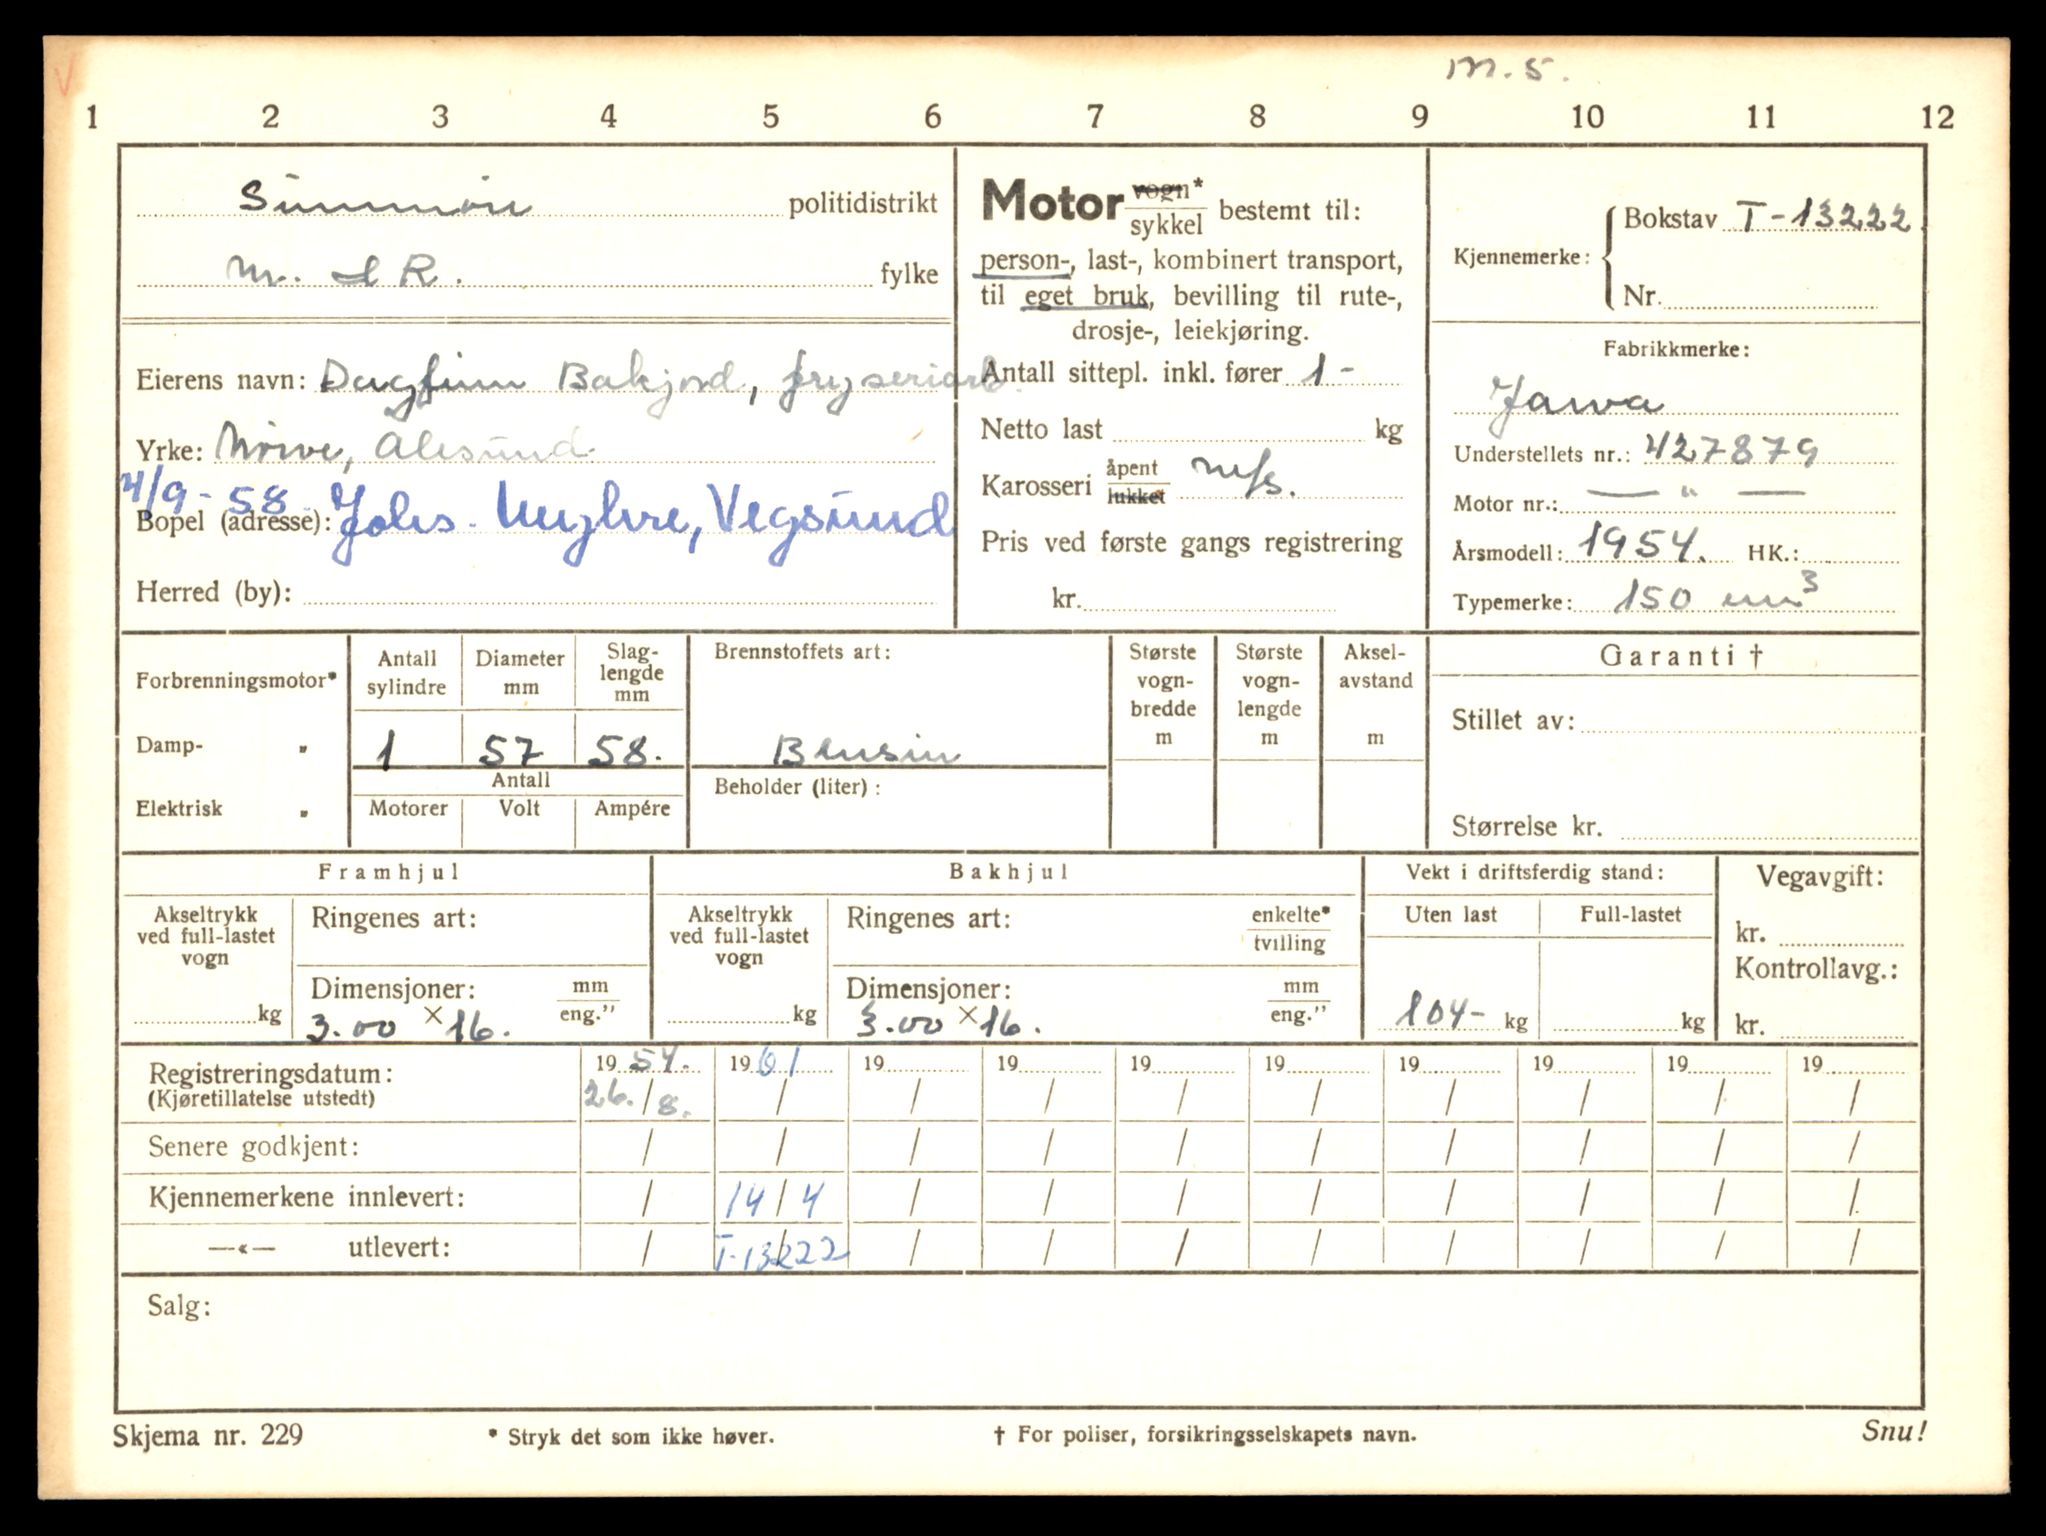 m. 5.
1 2 3 4 5 6 7 8 9 10 11 12
Sunnmøre politidistrikt
M. & R. fylke
Eierens navn: Dagfinn Bakjord, fryseriarb.
Yrke: Nørve, Ålesund
4/9-58.
Bopel (adresse): Johs. Myhre, Vegsund
Herred (by):
Motor vogn*
sykkel bestemt til:
person-, last-, kombinert transport,
til eget bruk, bevilling til rute-,
drosje-, leiekjøring.
Antall sittepl. inkl. fører 1 -
Netto last kg
Karosseri åpent
lukket m/s.
Pris ved første gangs registrering
kr.
Kjennemerke: Bokstav T-13222.
Nr.
Fabrikkmerke:
Jawa
Understellets nr.: 427879
Motor nr.: — " —
Årsmodell: 1954. HK.:
Typemerke: 150 cm3
Forbrenningsmotor*
Damp- "
Elektrisk "
Antall sylindre
Diameter mm
Slag-
lengde
mm
1 57 58.
Antall
Motorer Volt Ampére
Brennstoffets art:
Bensin
Beholder (liter) :
Største
vogn-
bredde
m
Største
vogn-
lengde
m
Aksel-
avstand
m
Garanti †
Stillet av:
Størrelse kr.
Framhjul
Akseltrykk
ved full-lastet
vogn
kg
Ringenes art:
Dimensjoner: mm
eng."
3.00 × 16.
Bakhjul
Akseltrykk
ved full-lastet
vogn
kg
Ringenes art: enkelte*
tvilling
Dimensjoner: mm
eng."
3.00 × 16.
Vekt i driftsferdig stand:
Uten last Full-lastet
104- kg kg
Vegavgift:
kr.
Kontrollavg.:
kr.
Registreringsdatum: 19 54. 19 61 19 19 19 19 19 19 19 19
(Kjøretillatelse utstedt) 26. / 8. / / / / / / / / /
Senere godkjent: / / / / / / / / / /
Kjennemerkene innlevert: / 14 / 4 / / / / / / / /
—«— utlevert: / T-13222 / / / / / / / /
Salg:
Skjema nr. 229 * Stryk det som ikke høver. † For poliser, forsikringsselskapets navn. Snu!